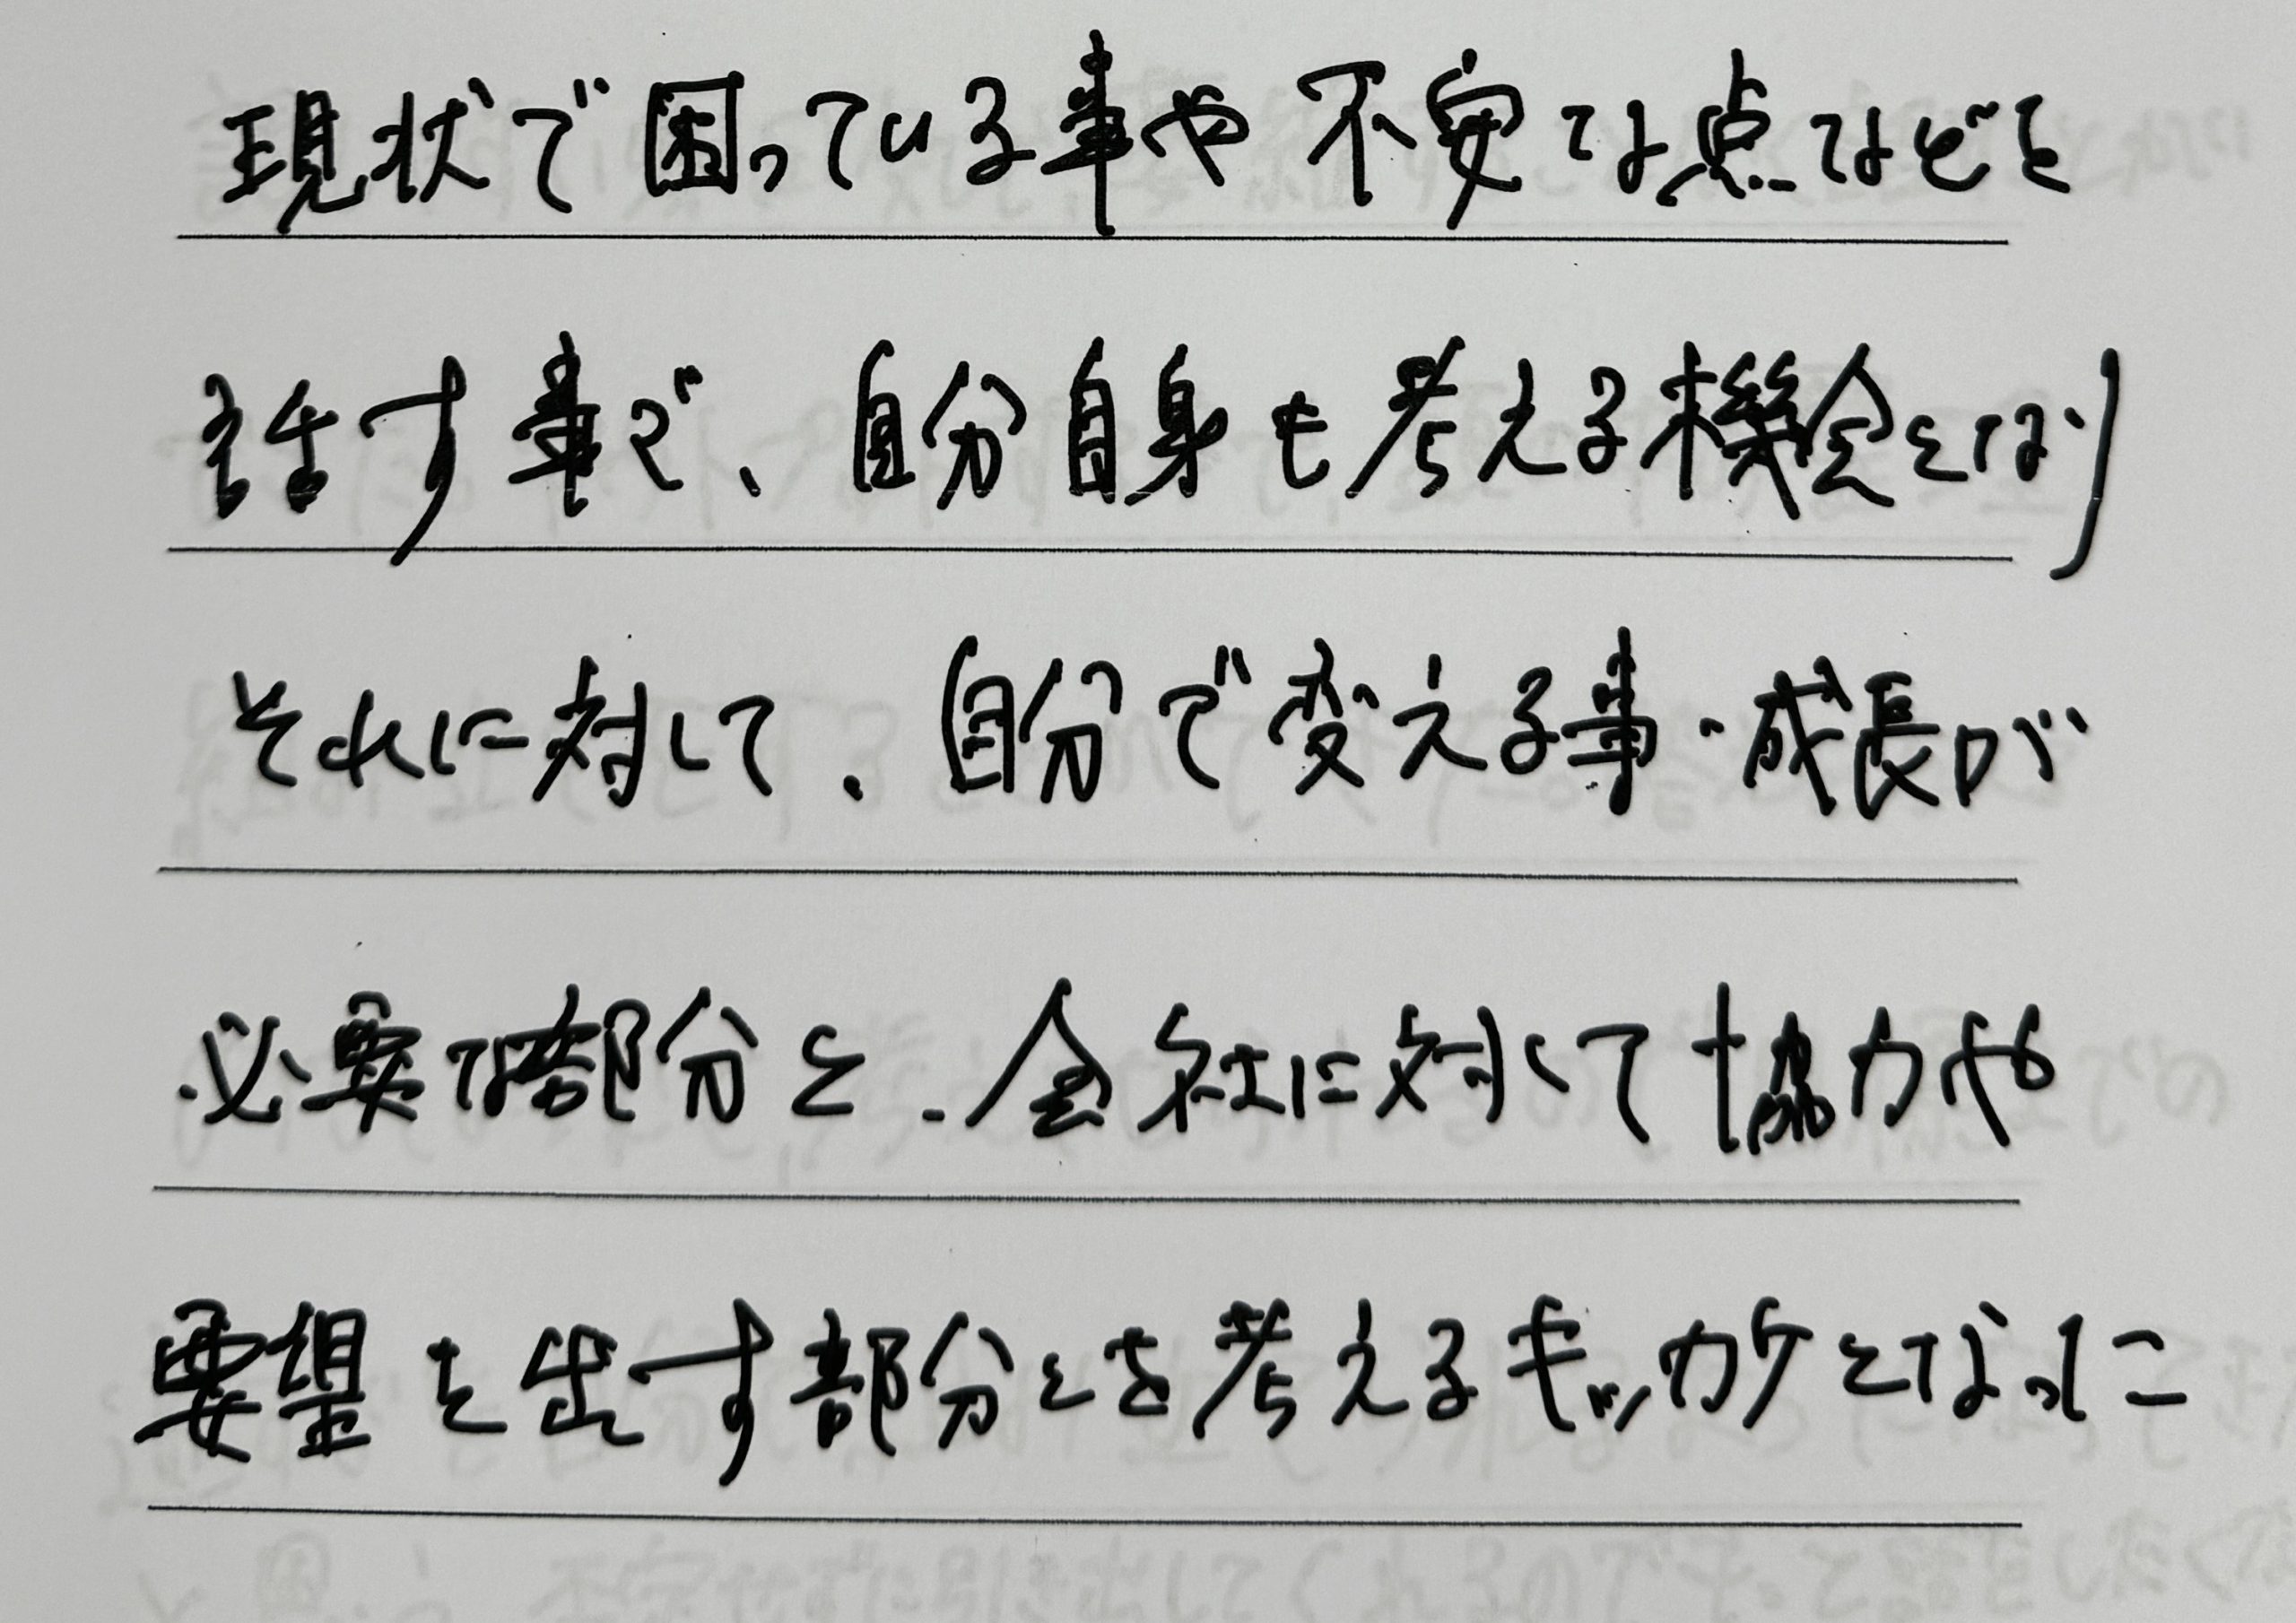 現状で困っている事や不安な点などを
話す事で、自分自身も考える機会となり
それに対して、自分で変える事・成長が
必要な部分と、会社に対して協力や
要望を出す部分とを考えるキッカケとなった